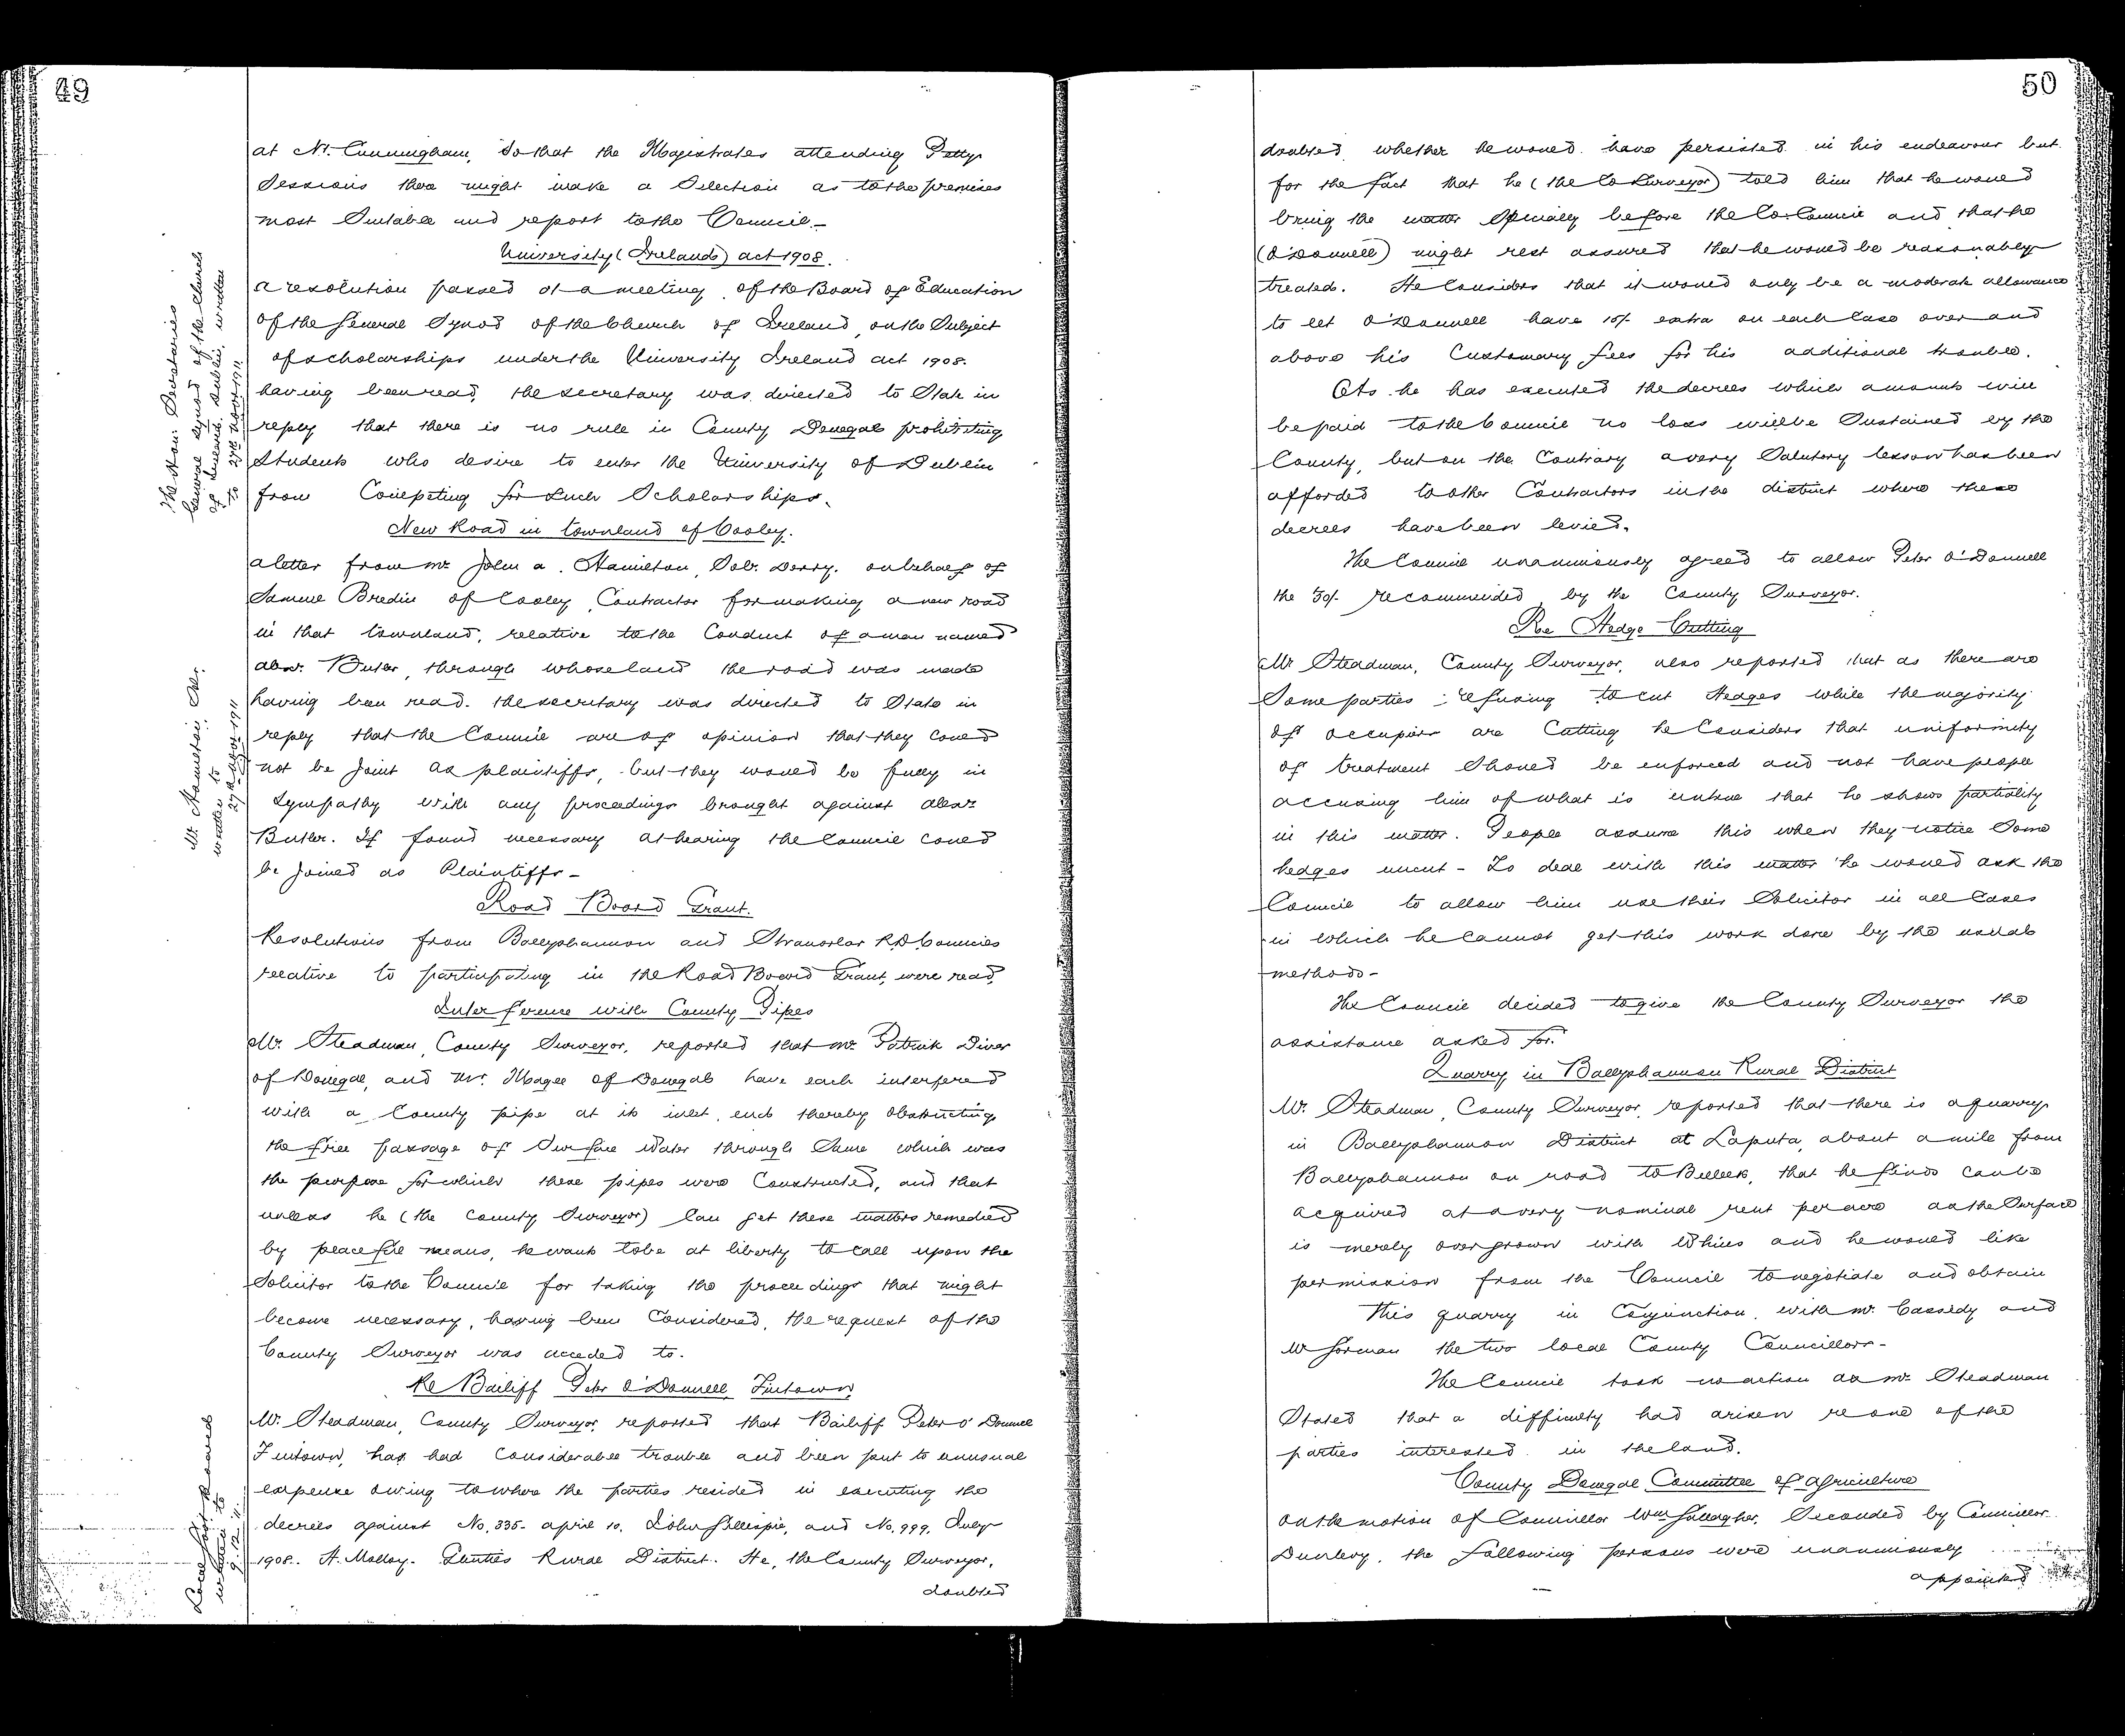 49
at Nt. Cunningham, So that the Magistrates attending Petty
Sessions there might make a Selection as to the premises
most Suitable and report to the Council.-
University (Ireland) act 1908.
The Hon: Secretaries
General Synod of the Church
of Ireland, Dublin, written
to 27th Novr 1911
a resolution passed at a meeting of the Board of Education
of the General Synod of the Church of Ireland, on the Subject
of scholarships under the University Ireland act 1908.
having been read, the secretary was directed to State in
reply that there is no rule in County Donegal prohibiting
Students who desire to enter the University of Dublin
from Competing for Such Scholarships.
New Road in townland of Cooley.
a letter from Mr John a. Hamilton, Solr. Derry. on behalf of
Samuel Bredin of Cooley, Contractor for making a new road
in that townland, relative to the Conduct of a man named
Alexr. Butler, through whose land the road was made
Mr. Hamilton, Solr.
written to
27th Novr 1911
having been read. the secretary was directed to State in
reply that the Council are of opinion that they could
not be joint as plaintiffs, but they would be fully in
Sympathy with any proceedings brought against Alexr
Butler. If found necessary at hearing the Council could
be joined as Plaintiffs-
Road Board Grant.
Resolutions from Ballyshannon and Stranorlar R.D. Councils
relative to participating in the Road Board Grant, were read,
Interference with County Pipes
Mr. Steadman, County Surveyor, reported that Mr Patrick Diver
of Donegal, and Mr. Magee of Donegal have each interfered
with a County pipe at its inlet end thereby obstructing
the free passage of Surface Water through Same which was
the purpose for which these pipes were Constructed, and that
unless he (the County Surveyor) Can get these matters remedied
by peaceful means, he wants to be at liberty to call upon the
Solicitor to the Council for taking the proceedings that might
become necessary, having been Considered, the request of the
County Surveyor was acceded to.
Re Bailiff Peter O'Donnell Fintown
Local Govt Board
written to
9.12.11.
Mr. Steadman, County Surveyor, reported that Bailiff Peter O'Donnell
Fintown, has had Considerable trouble and been put to unusual
expense owing to where the parties resided in executing the
decrees against No. 335- april 10, John Gillespie, and No. 999, July
1908. H. Molloy- Glenties Rural District. He, the County Surveyor,
doubted
50
doubted whether he would have persisted in his endeavour but
for the fact that he (the Co Surveyor) told him that he would
bring the matter Specially before the Co. Council and that he
(O'Donnell) might rest assured that he would be reasonably
treated. He Considers that it would only be a moderate allowance
to let O'Donnell have 10/- extra on each Case over and
above his Customary fees for his additional trouble.
As he has executed the decrees which amounts will
be paid to the Council no loss will be Sustained by the
County, but on the Contrary a very Salutary lesson has been
afforded to other Contractors in the district where these
decrees have been levied.
The Council unanimously agreed to allow Peter O'Donnell
the 50/- recommended by the County Surveyor.
Re Hedge Cutting
Mr Steadman, County Surveyor, also reported that as there are
Some parties refusing to cut Hedges while the majority
of occupiers are Cutting he Considers that uniformity
of treatment Should be enforced and not have people
accusing him of what is untrue that he shows partiality
in this matter. People assume this when they notice Some
hedges uncut- To deal with this matter he would ask the
Council to allow him use their Solicitor in all Cases
in which he Cannot get this work done by the usual
methods-
The Council decided to give the County Surveyor the
assistance asked for.
Quarry in Ballyshannon Rural District
Mr. Steadman, County Surveyor, reported that there is a quarry
in Ballyshannon District at Laputa, about a mile from
Ballyshannon on road to Belleek, that he finds can be
acquired at a very nominal rent per acre as the Surface
is merely overgrown with Whins and he would like
permission from the Council to negotiate and obtain
this quarry in Conjunction with Mr. Cassidy and
Mr Gorman the two local County Councillors-
The Council took no action as Mr. Steadman
Stated that a difficulty had arisen re one of the
parties interested in the land.
County Donegal Committee of agriculture
On the motion of Councillor Wm Gallagher, Seconded by Councillor
Dunlevy, the following persons were unanimously
appointed